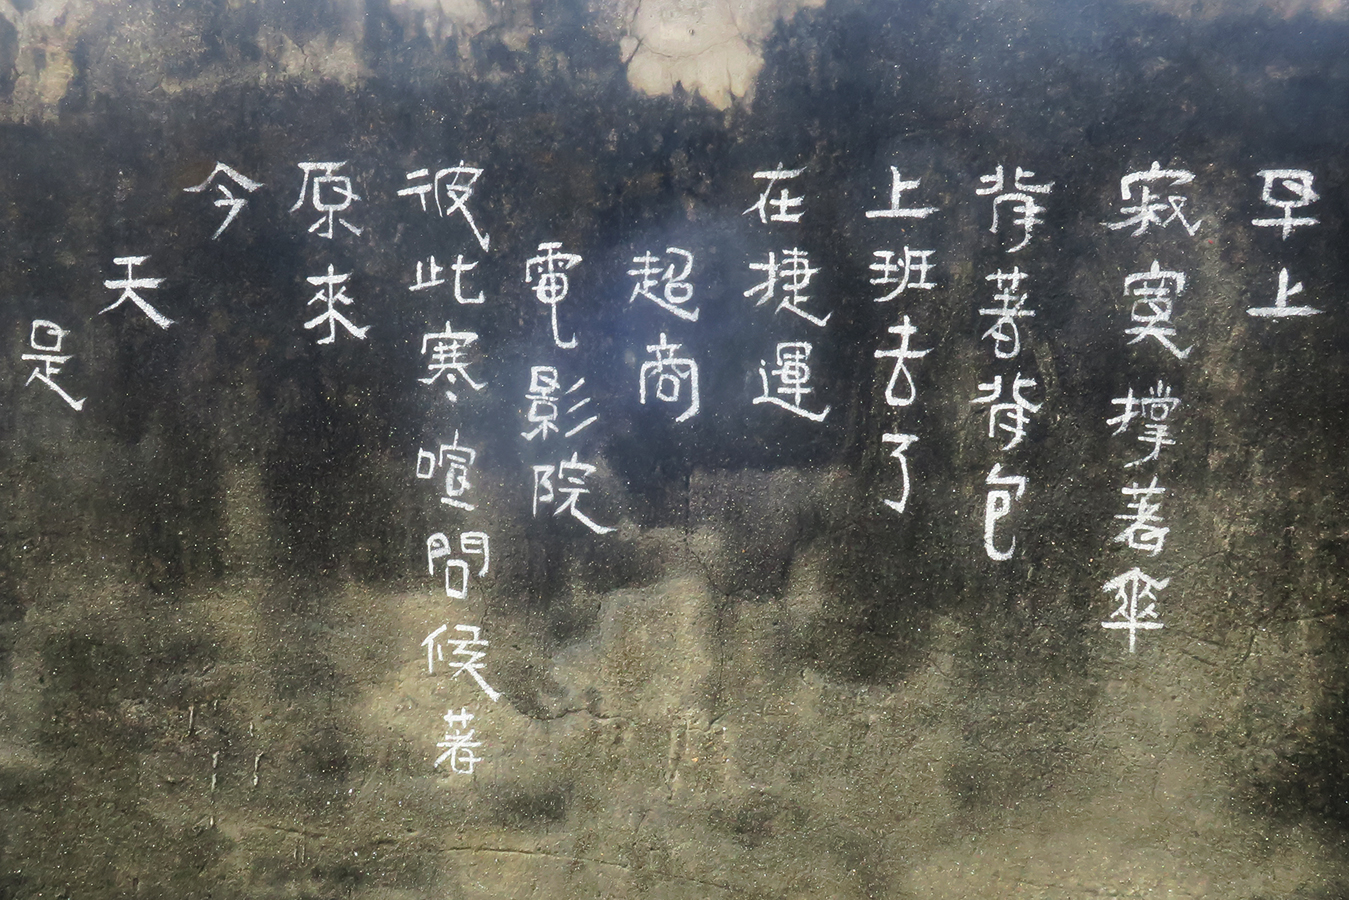 早上
寂寞撐著傘
背著背包
上班去了
在捷運
超商
電影院
彼此寒喧問候著
原來
今
天
是